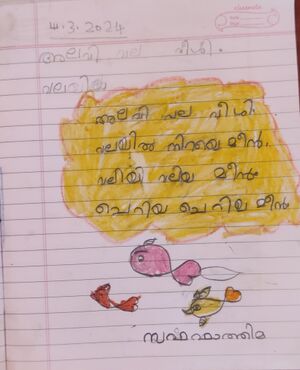 classmate
4.3.2024
അലവി വല വീശി.
വലയിൽ
അലവി വല വീശി.
വലയിൽ നിറയെ മീൻ.
വലിയ വലിയ മീൻ
ചെറിയ ചെറിയ മീൻ
സഫ ഫാത്തിമ